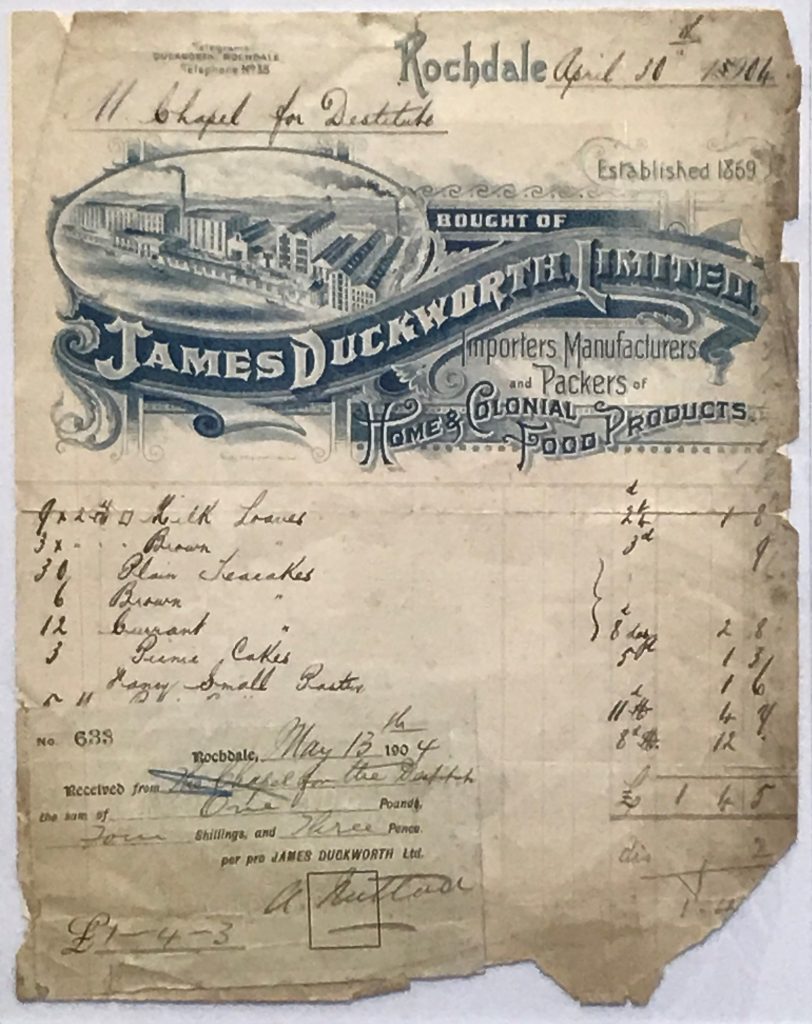 Telegrams
DUCKWORTH ROCHDALE
Telephone No 38
Rochdale April 30th 1904
Chapel for Destitute
Established 1869
BOUGHT OF
JAMES DUCKWORTH, LIMITED,
Importers, Manufacturers
and Packers of
HOME & COLONIAL
FOOD PRODUCTS.
Milk Loaves 1 8
3 x Brown " 3d 9
30 Plain Teacakes
6 Brown "
12 Currant " 8 doz 2 8
3 Cakes 5d 1 3
Small 1 6
11 4
8d 12
£ 1 4 5
dis 2
1-4
No. 633
Rochdale, May 13th 1904
Received from The Chapel for the Destitute
the sum of One Pounds,
Four Shillings, and Three Pence.
per pro JAMES DUCKWORTH Ltd.
£1-4-3